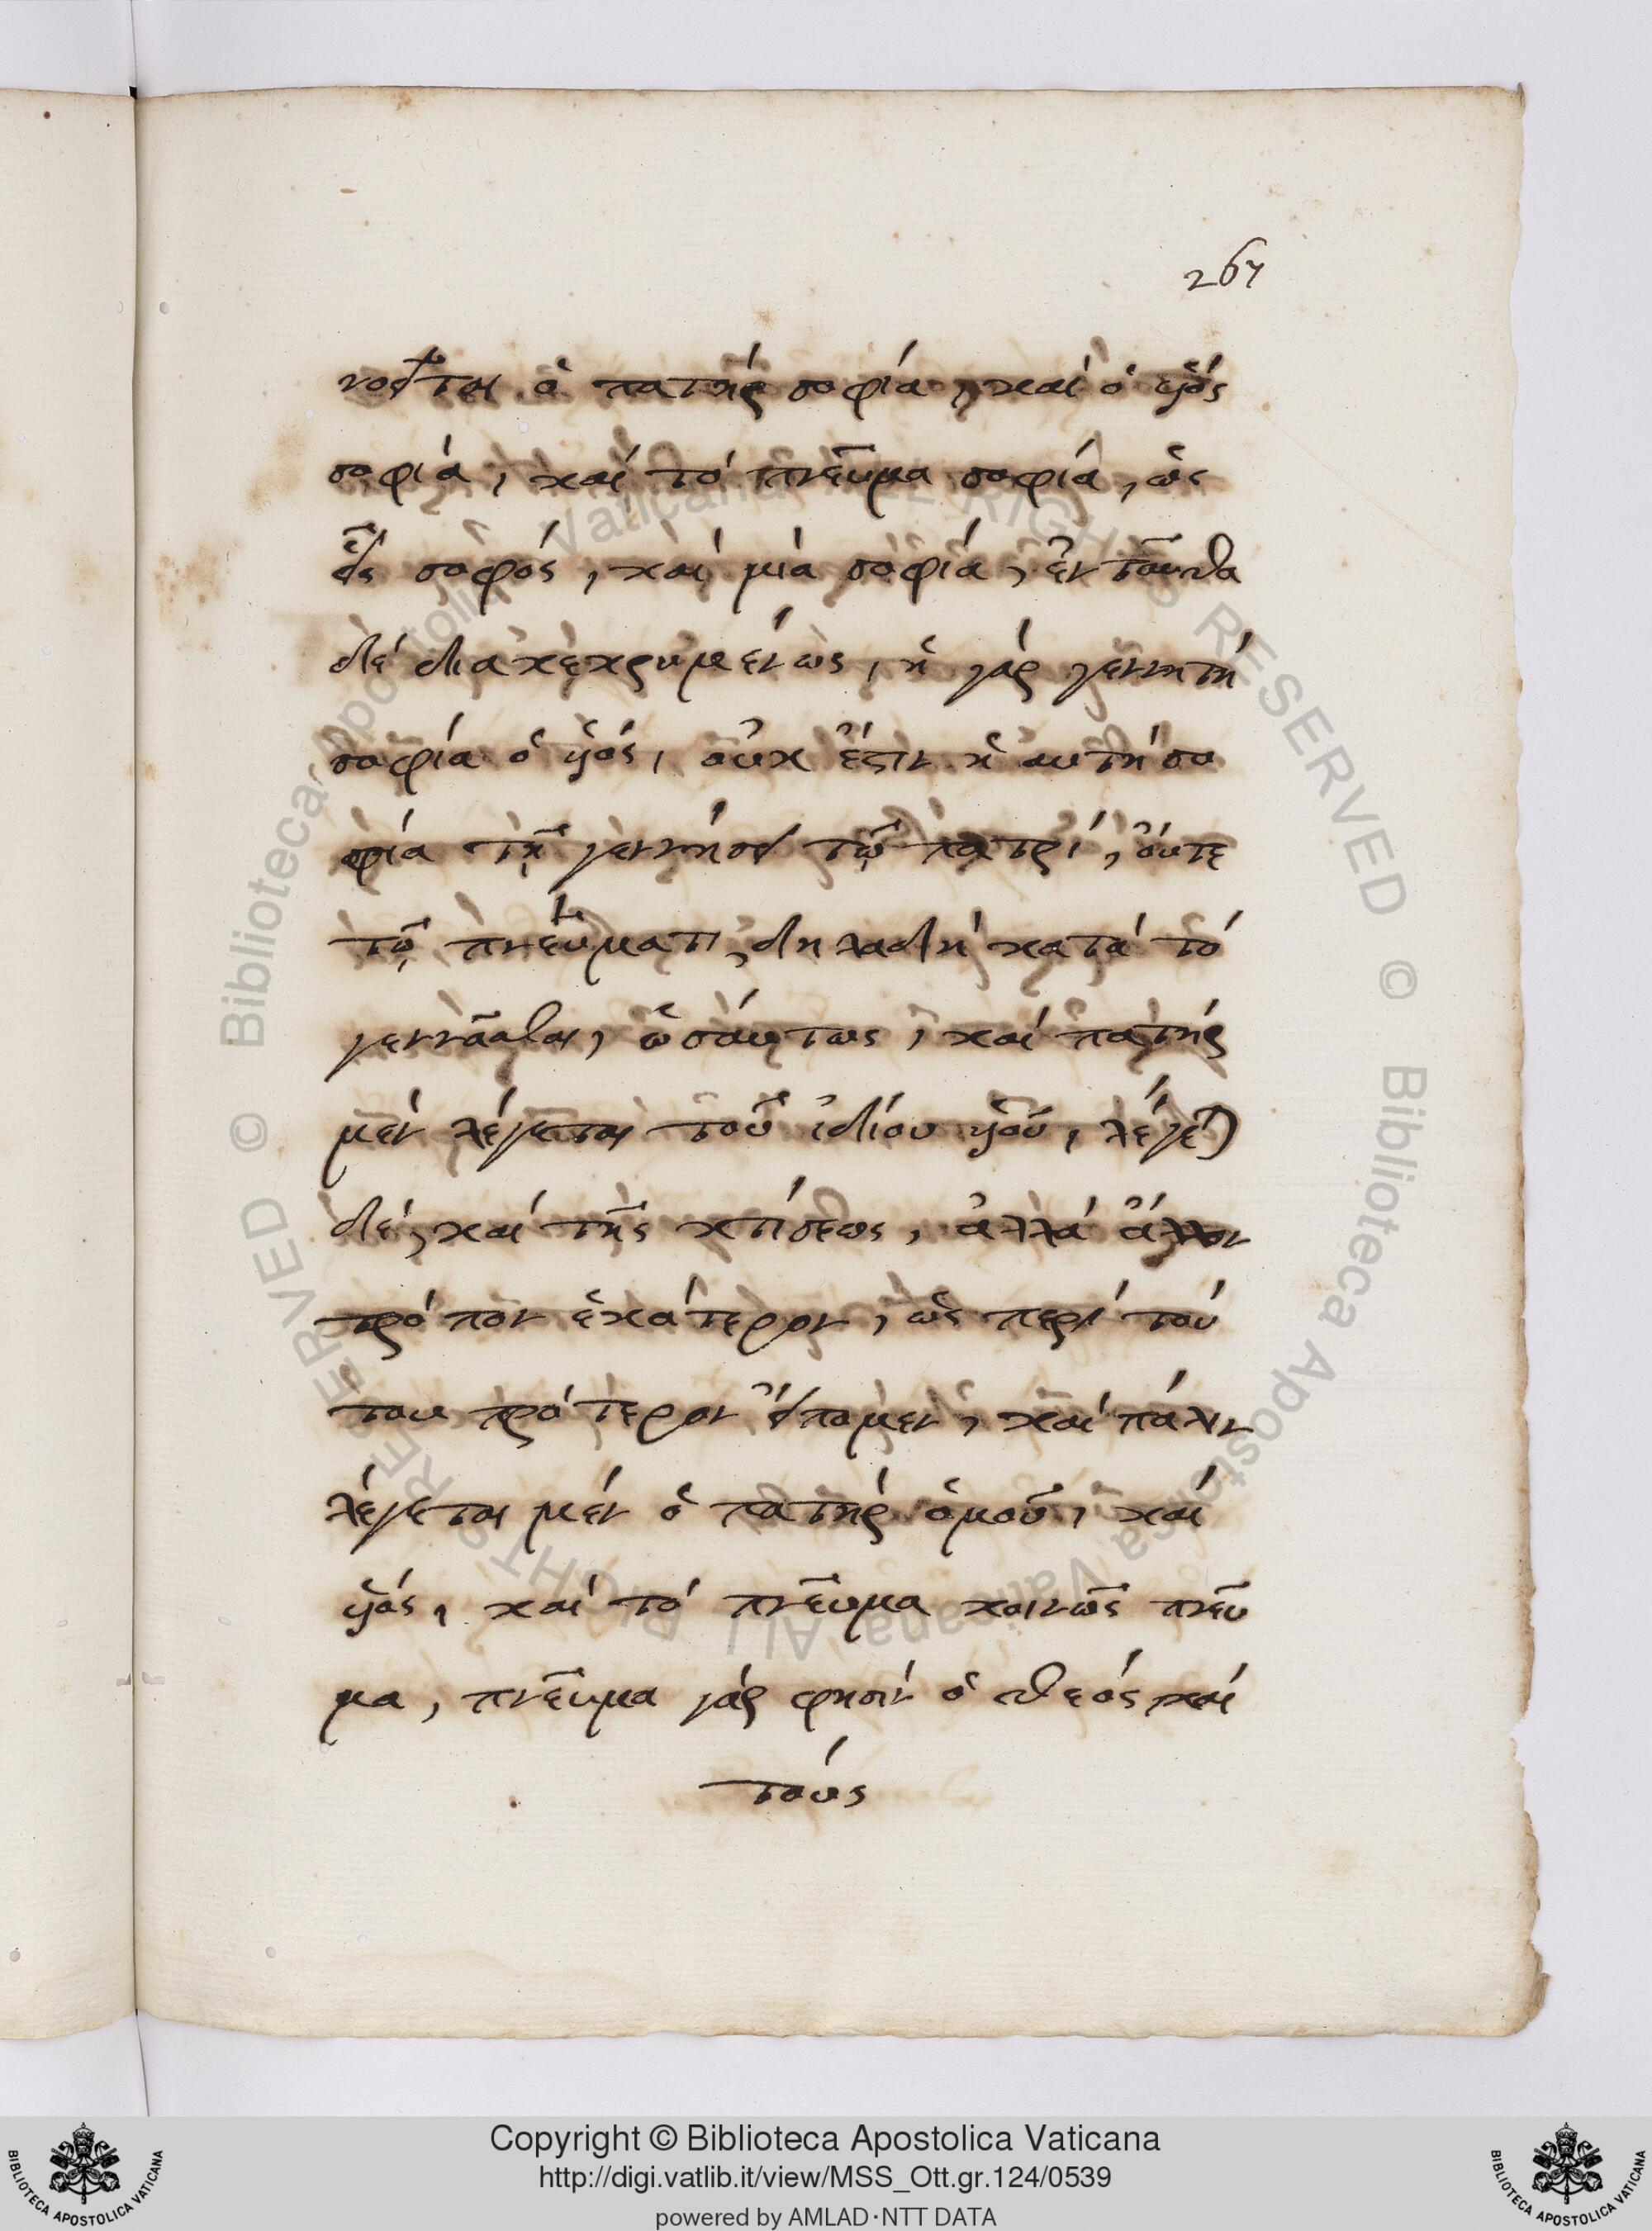 267
νοεῖται ὁ πατήρ σοφία, καί ὁ υἱός
σοφία, καί τό πνεῦμα σοφία, ὡς
εἷς σοφός, καί μία σοφία, ἐνταῦθα
δέ διακεκρυμένως, ἡ γάρ γεννητή
σοφία ὁ υἱός, οὐκ ἔστιν ἡ αυτή σο
φία τῇ γεννήσει τῷ πατρί, οὔτε
τῷ πνεύματι, δηλαδή κατά τό
γεννᾶσθαι, ὡσάυτως, καί πατήρ
μέν λέγεται τοῦ ἰδίου υἱοῦ, λέγεται
δέ, καί τῆς κτίσεως, ἀλλά ἄλλον
τρόπον ἑκάτερον, ὡς περί τού
του πρότερον εἴπομεν, καί πάλιν
λέγεται μέν ὁ πατήρ ὁμοῦ, καί
υἱός, καί τό πνεῦμα κοινῶς πνεῦ
μα, πνεῦμα γάρ φησίν ὁ θεός καί
τούς
Copyright © Biblioteca Apostolica Vaticana
http://digi.vatlib.it/view/MSS_Ott.gr.124/0539
powered by AMLAD·NTT DATA